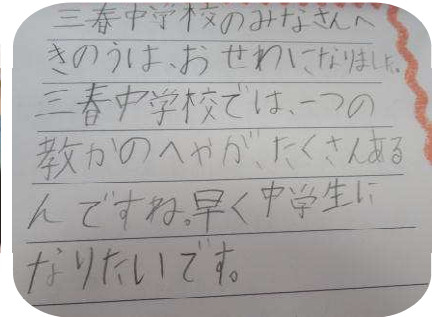 三春中学校のみなさんへ
きのうは、おせわになりました。
三春中学校では、一つの
教かのへやが、たくさんある
んですね。早く中学生に
なりたいです。